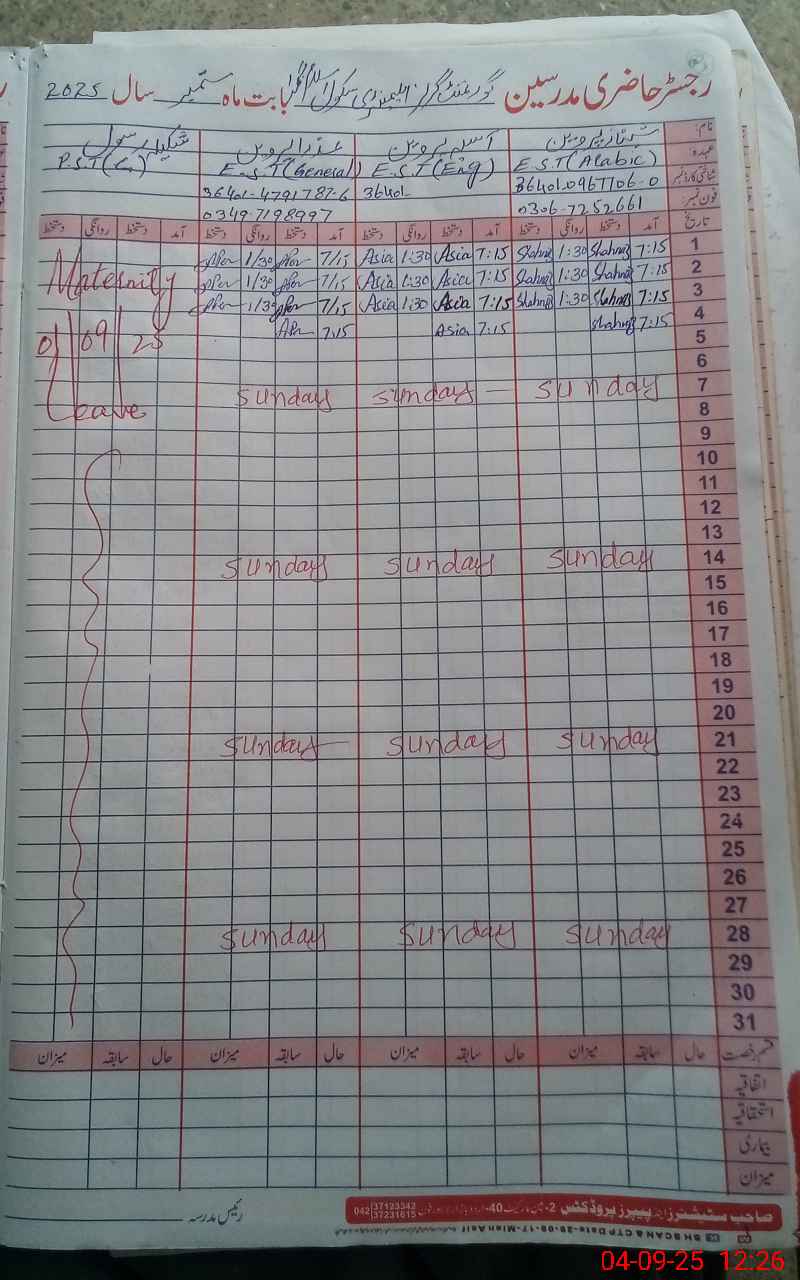 رجسٹر حاضری مدرسین گورنمنٹ گرلز ایلیمنٹری سکول بابت ماہ ستمبر سال 2025
نام: شہناز پروین آسیہ پروین عذرا پروین شکیلہ رسول
عہدہ: E.S.T (Arabic) E.S.T (Eng) E.S.T (General) P.S.T (G)
شناختی کارڈ نمبر 36401-0967706-0 36401- 36401-4791787-6
فون نمبر: 0306-7252661 0349-7198997
تاریخ آمد دستخط روانگی دستخط آمد دستخط روانگی دستخط آمد دستخط روانگی دستخط آمد دستخط روانگی دستخط
1 7:15 Shahnaz 1:30 Shahnaz 7:15 Asia 1:30 Asia 7/15 1/30
2 7:15 Shahnaz 1:30 Shahnaz 7:15 Asia 1:30 Asia 7/15 1/30 Maternity
3 7:15 Shahnaz 1:30 Shahnaz 7:15 Asia 1:30 Asia 7/15 1/30
4 7:15 Shahnaz 7:15 Asia 7:15
5 01/09/25
6
7 Sunday Sunday Sunday
8 Leave
9
10
11
12
13
14 Sunday Sunday Sunday
15
16
17
18
19
20
21 Sunday Sunday Sunday
22
23
24
25
26
27
28 Sunday Sunday Sunday
29
30
31
قسم رخصت حال سابقہ میزان حال سابقہ میزان حال سابقہ میزان حال سابقہ میزان
اتفاقیہ
استحقاقیہ
بیماری
میزان
رئیس مدرسہ
صاحب سٹیشنرز اینڈ پیپرز پروڈکٹس 2- 40-اردو بازار لاہور فون 042 37123342 37231615
04-09-25 12:26